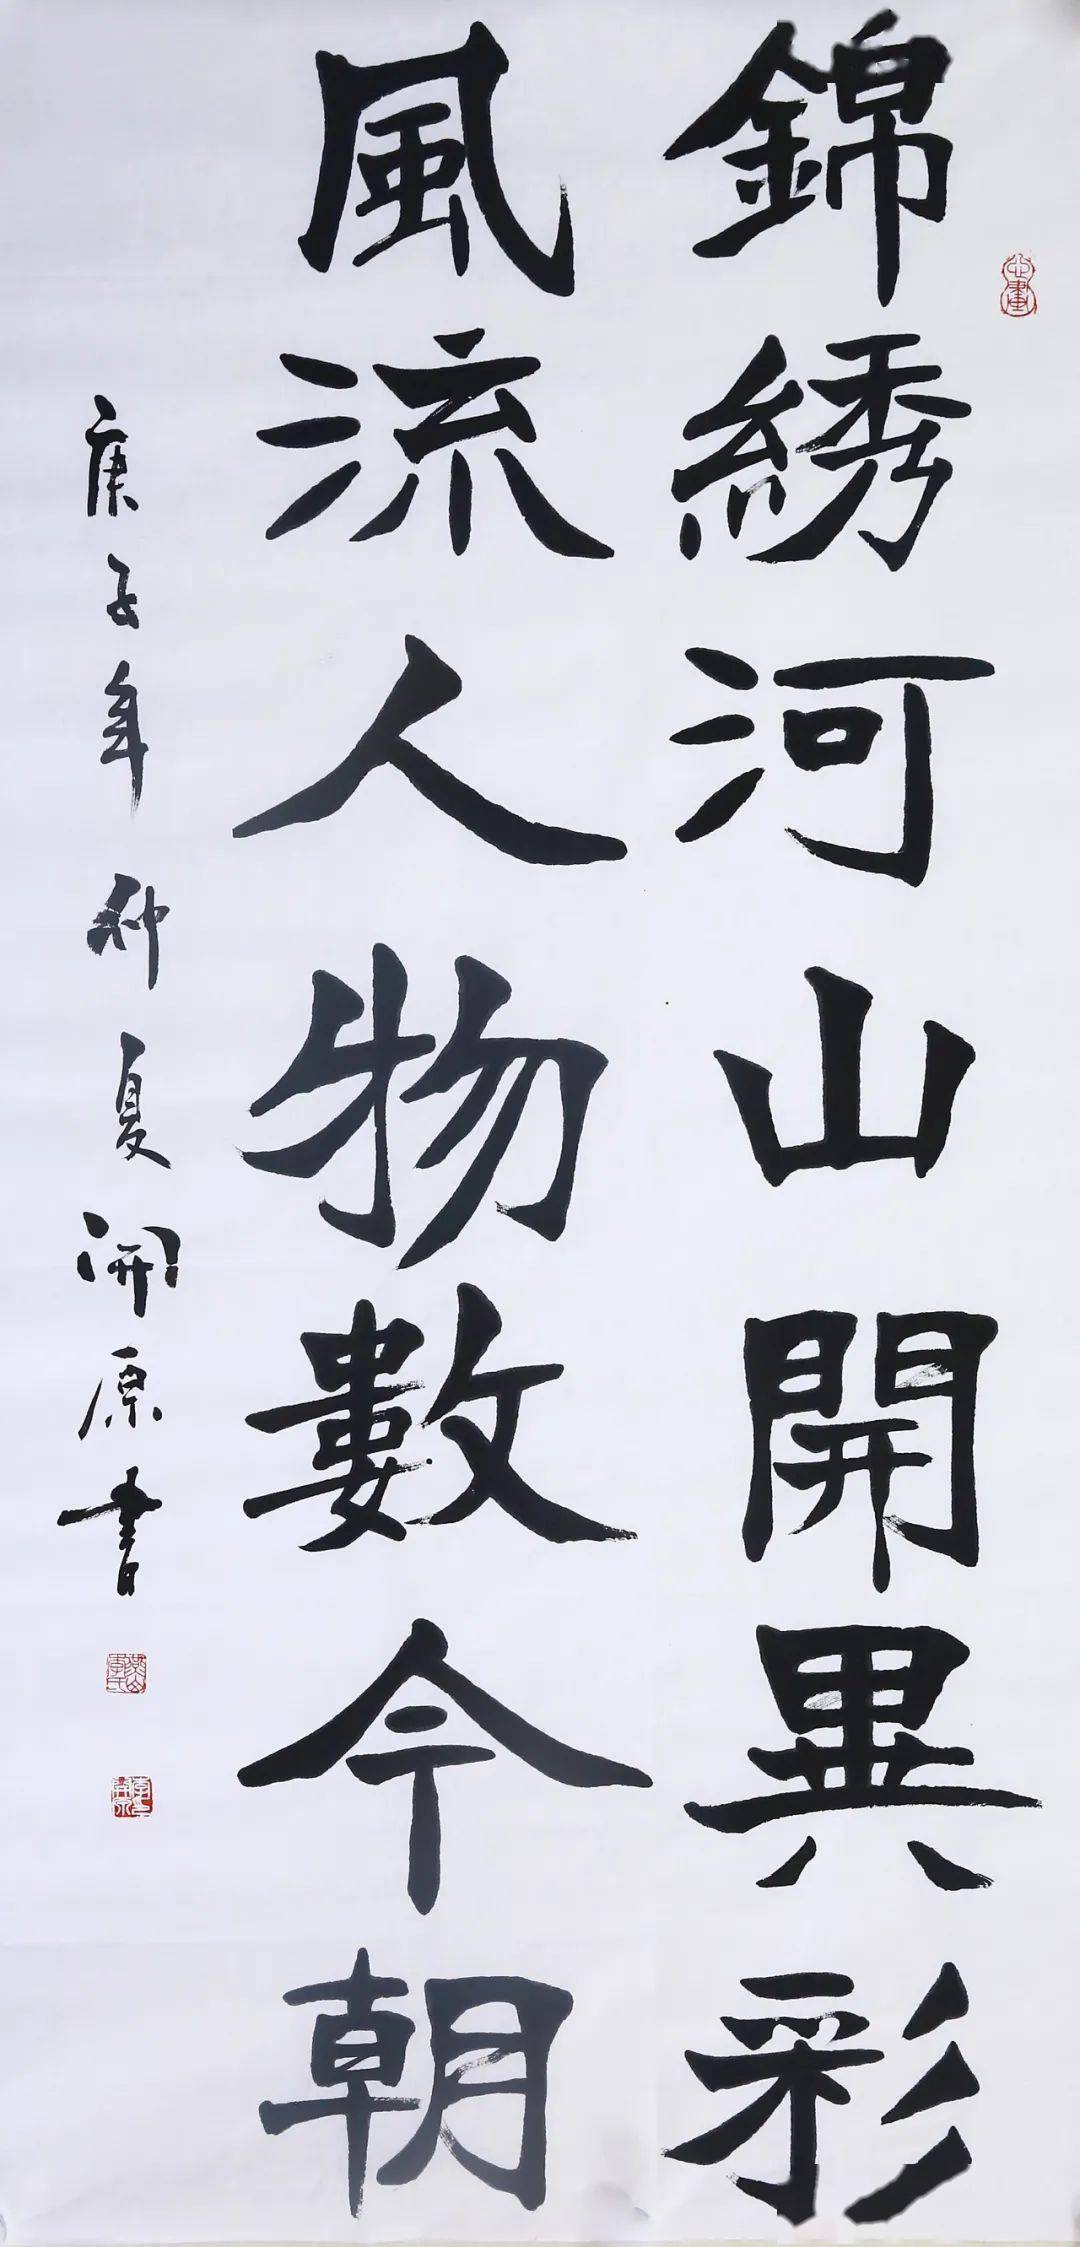 錦綉河山開異彩
風流人物數今朝
庚子年仲夏開原書